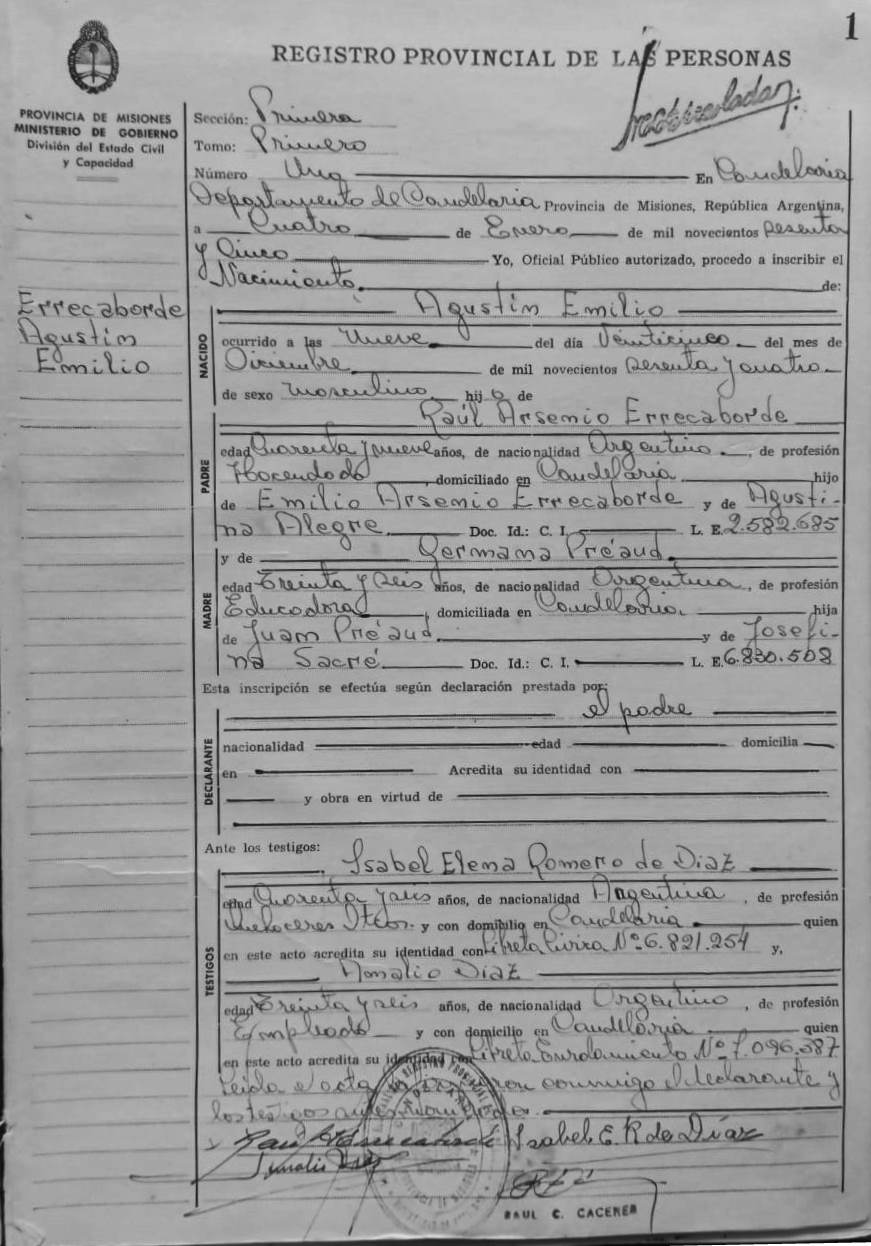 1
REGISTRO PROVINCIAL DE LAS PERSONAS
PROVINCIA DE MISIONES
MINISTERIO DE GOBIERNO
División del Estado Civil
y Capacidad
Sección: Primera
Tomo: Primero
Número Uno En Candelaria
Departamento de Candelaria Provincia de Misiones, República Argentina,
a Cuatro de Enero de mil novecientos sesenta
y Cinco Yo, Oficial Público autorizado, procedo a inscribir el
Nacimiento de:
Errecaborde
Agustín
Emilio
Agustín Emilio
NACIDO
ocurrido a las nueve del día Veinticinco del mes de
Diciembre de mil novecientos sesenta y cuatro
de sexo masculino hijo de
Raúl Arsenio Errecaborde
PADRE
edad Cuarenta y nueve años, de nacionalidad Argentino, de profesión
Hacendado, domiciliado en Candelaria hijo
de Emilio Arsenio Errecaborde y de Agusti-
na Alegre Doc. Id.: C. I. L. E. 2.582.685
y de Germana Préaud
MADRE
edad Treinta y seis años, de nacionalidad Argentina, de profesión
Educadora, domiciliada en Candelaria hija
de Juan Préaud y de Josefi-
na Sacré Doc. Id.: C. I. L. E. 6.830.508
Esta inscripción se efectúa según declaración prestada por:
el padre
DECLARANTE
nacionalidad edad domicilia
en Acredita su identidad con
y obra en virtud de
Ante los testigos:
Isabel Elena Romero de Diaz
TESTIGOS
edad Cuarenta y seis años, de nacionalidad Argentina, de profesión
Quehaceres y con domicilio en Candelaria quien
en este acto acredita su identidad con Libreta Cívica Nº 6.821.254 y,
Diaz
edad Treinta y seis años, de nacionalidad Argentino, de profesión
Empleado y con domicilio en Candelaria quien
en este acto acredita su identidad con Libreta Enrolamiento Nº 7.096.387
Leida el acta la firmaron conmigo el declarante y
los testigos
Isabel E. R de Díaz
RAUL C. CACERES